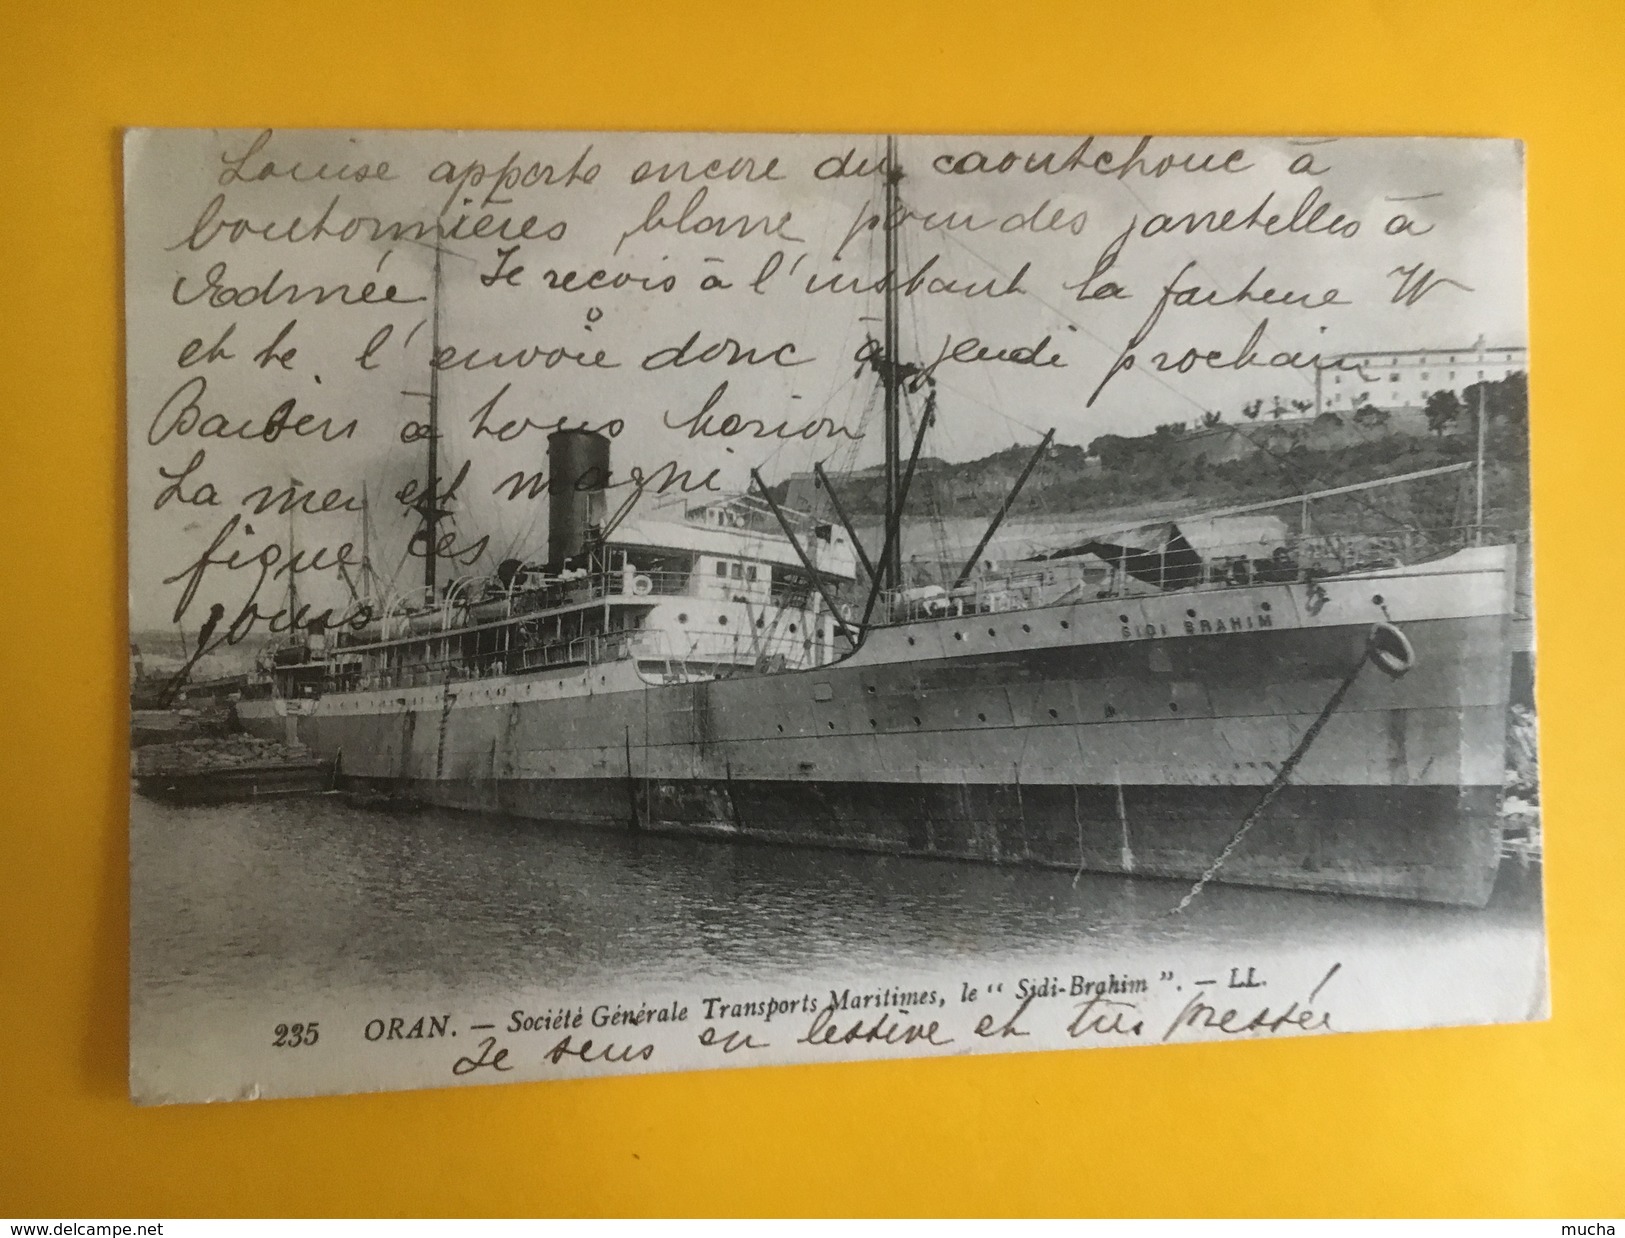 Louise apporte encore du caoutchouc à
boutonnières blanc pour des jarretelles à
Edmée Je reçois à l'instant la facture W
et te l'envoie donc à jeudi prochain
Baisers à tous
La mer est magni
fique ces
jours
SIDI BRAHIM
235 ORAN. — Société Générale Transports Maritimes, le "Sidi-Brahim". — LL.
Je suis en lessive et très pressée
www.delcampe.net
mucha